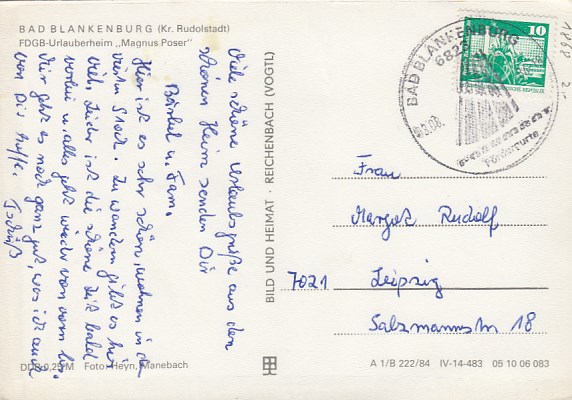 BAD BLANKENBURG (Kr. Rudolstadt)
FDGB-Urlauberheim „Magnus Poser"
Viele schöne Urlaubsgrüße aus dem
schönen Heim senden Dir
Bärbel u. Fam.
Hier ist es sehr schön, wohnen in der
Stadt. Zu wandern gibt es hier
viel. Leider ist die schöne Zeit bald
vorbei u. alles geht wieder von vorn los.
Mir geht es noch ganz gut, was ich auch
von Dir hoffe. Tschüß
DDR 0,25 M Foto: Heyn, Manebach
BILD UND HEIMAT · REICHENBACH (VOGTL)
BAD BLANKENBURG
10
Frau
Margot Rudolf
7021 Leipzig
Salzmannstr 18
A 1/B 222/84 IV-14-483 05 10 06 083